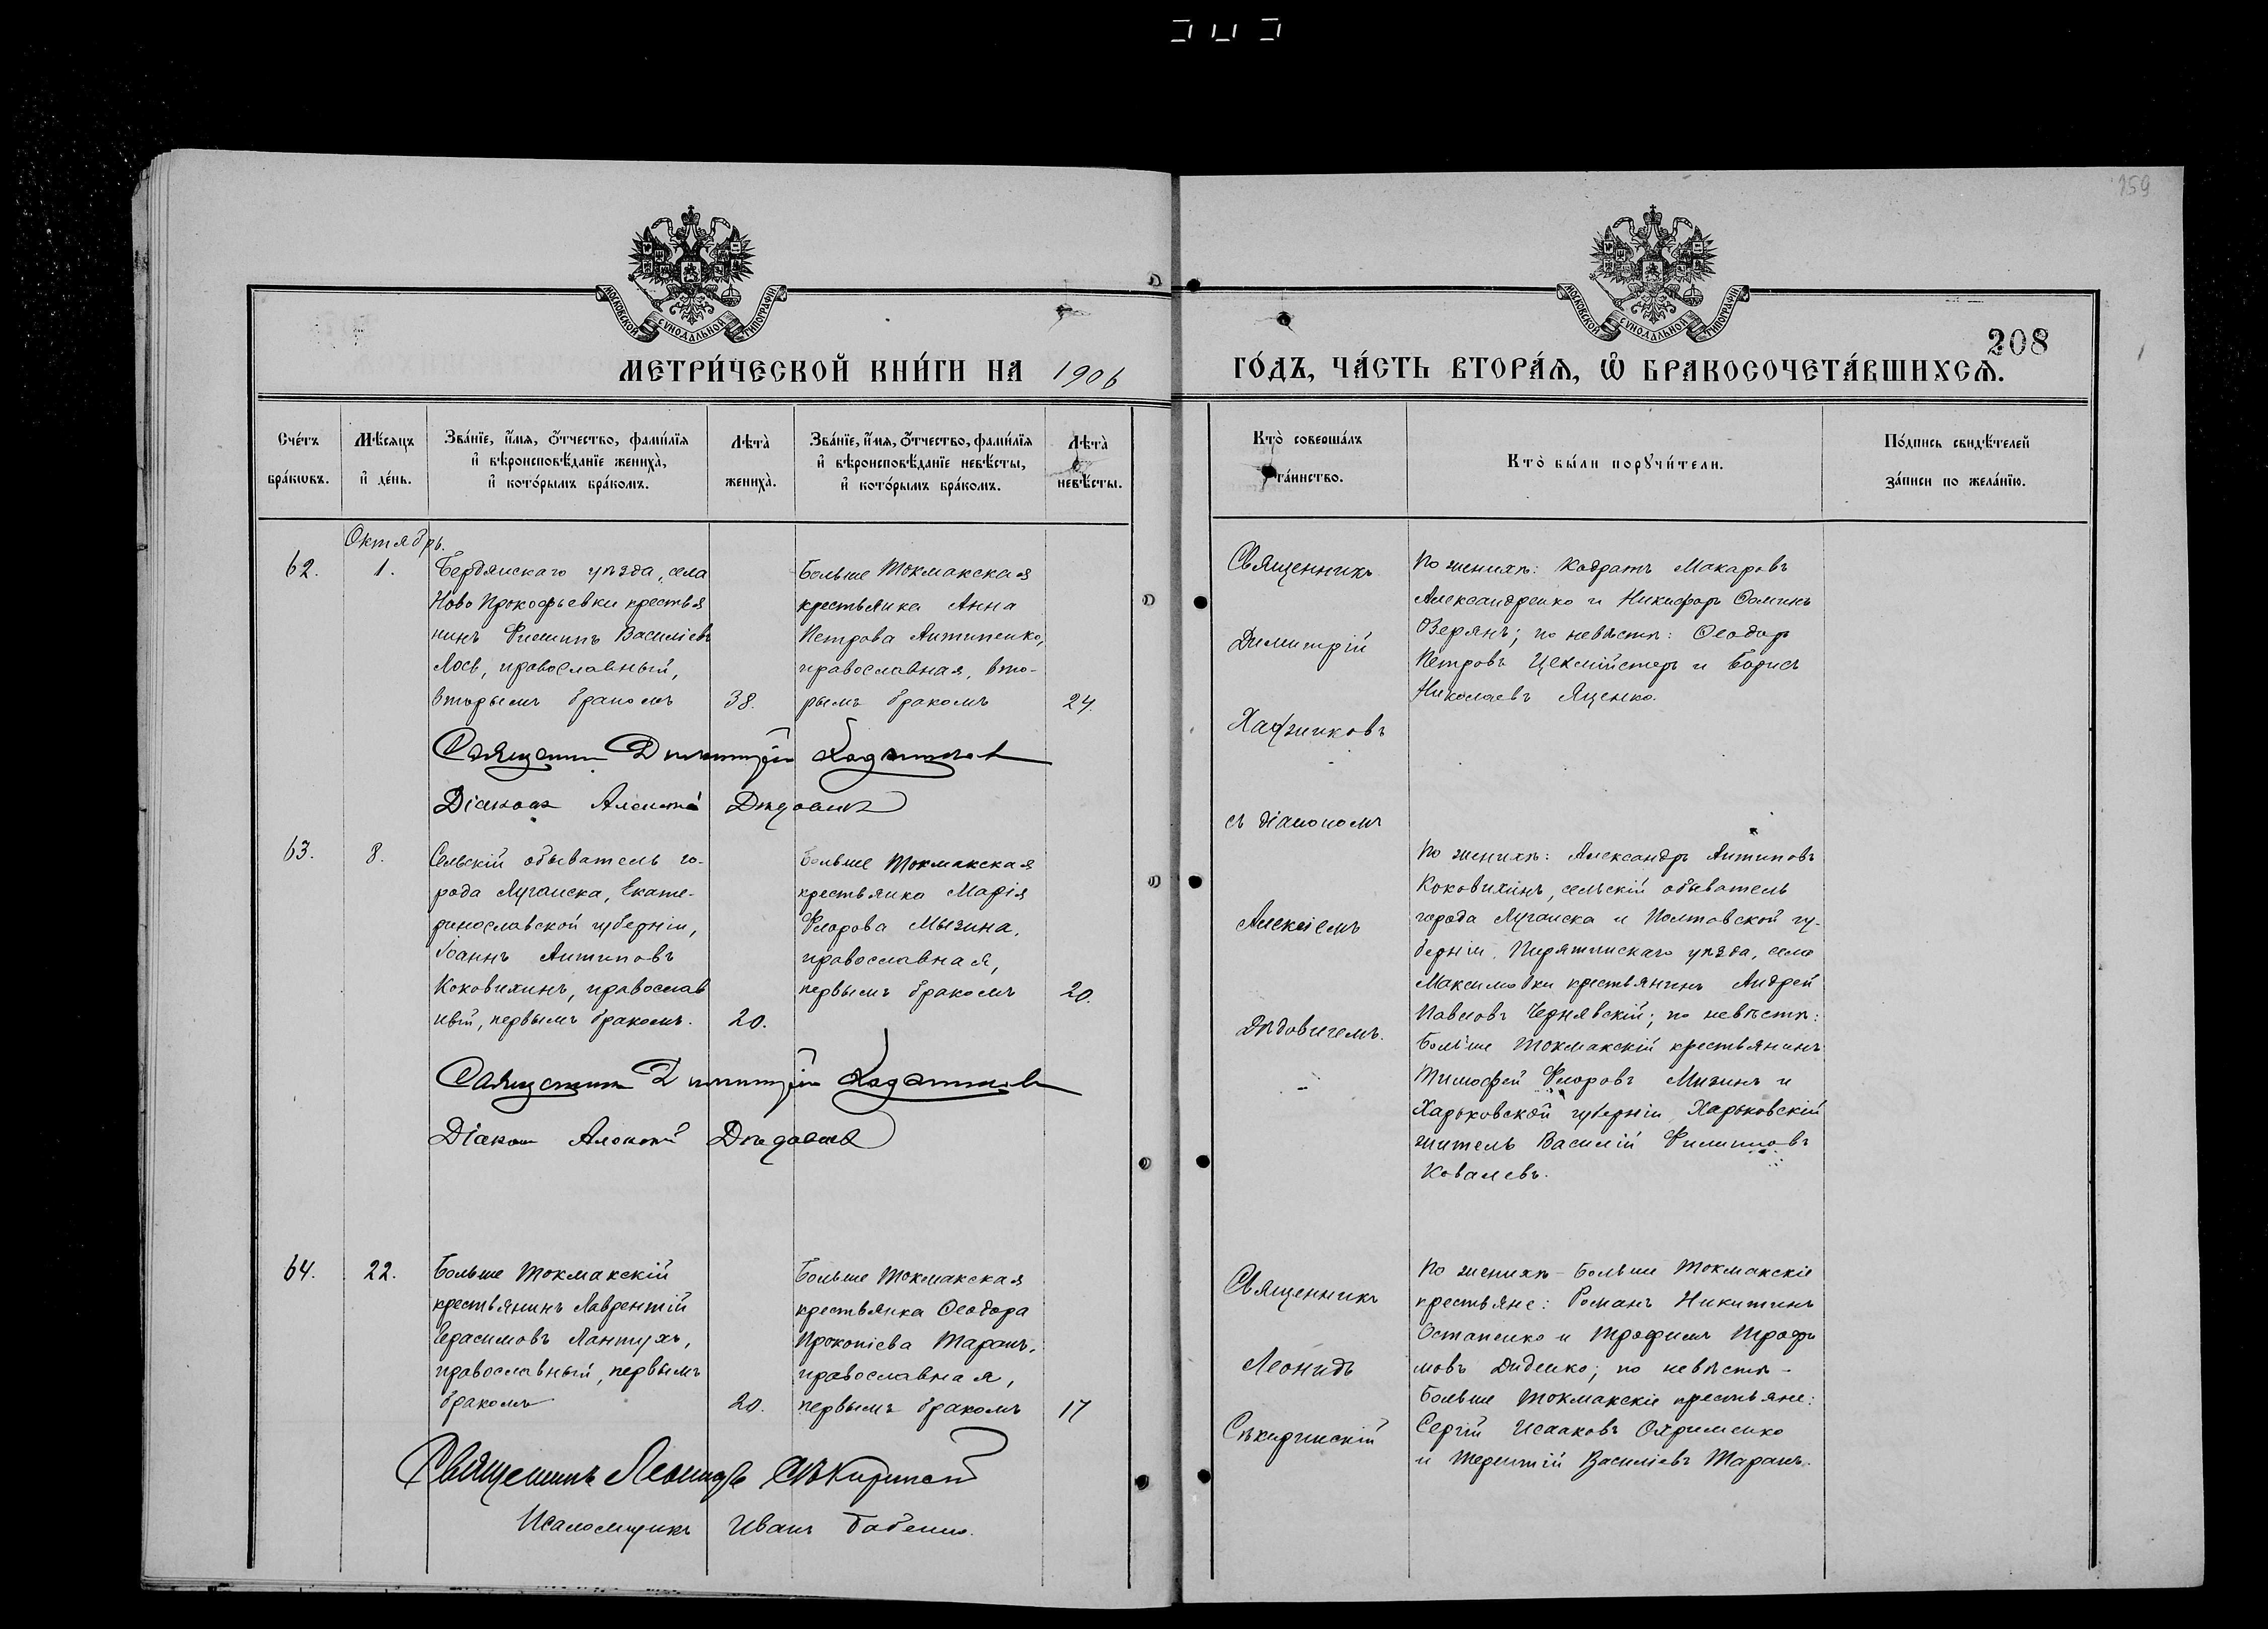 159
МОСКОВСКОЙ СУНОДАЛЬНОЙ ТИПОГРАФІИ
МОСКОВСКОЙ СУНОДАЛЬНОЙ ТИПОГРАФІИ
208
МЕТРИ́ЧЕСКОЙ КНИ́ГИ НА 1906
ГО́ДЪ, ЧА́СТЬ ВТОРА́Ѧ, Ѡ БРАКОСОЧЕТА́ВШИХСѦ.
Сче́тъ бра́кѡвъ.
Мѣ́сяцъ и де́нь.
Зва́нїе, и́мѧ, ѻ́тчество, фами́лїѧ
и вѣроисповѣ́данїе жениха̀,
и кото́рымъ бра́комъ.
Лѣта̀
жениха̀.
Зва́нїе, и́мѧ, ѻ́тчество, фами́лїѧ
и вѣроисповѣ́данїе невѣ́сты,
и кото́рымъ бра́комъ.
Лѣта̀
невѣ́сты.
Кто̀ соверша́лъ
та́инство.
Кто̀ бы́ли порꙋчи́тели.
По́дпись свидѣ́телей
за́писи по жела́нїю.
Октябрь.
62.
1.
Бердянскаго уѣзда, села
Ново Прокофьевки крестья
нинъ Филиппъ Василіевъ
Лось, православный,
вторымъ бракомъ
38.
Больше Токмакская
крестьянка Анна
Петрова Антипенко,
православная, вто-
рымъ бракомъ
24.
Священникъ
Димитрій
с діакономъ
Алексіемъ
Дѣдовичемъ.
По женихѣ: Кодратъ Макаровъ
Александренко и Никифоръ Ѳоминъ
Озерянъ; по невѣстѣ: Ѳеодоръ
Петровъ Цехмійстеръ и Борисъ
Николаевъ Яценко.
Священник Димитрій
Діаконъ Алексій Дѣдовичъ
63.
8.
Сельскій обыватель го-
рода Луганска, Екате-
ринославской губерніи,
Іоаннъ Антиповъ
Коковихинъ, православ
ный, первымъ бракомъ.
20.
Больше Токмакская
крестьянка Марія
Флорова Мызина,
православная,
первымъ бракомъ
20.
По женихѣ: Александръ Антиповъ
Коковихинъ, сельскій обыватель
города Луганска и Полтавской гу-
берніи, Пирятинскаго уѣзда, села
Максимовки крестьянинъ Андрей
Павловъ Чернявскій; по невѣстѣ:
Больше Токмакскій крестьянинъ
Тимофей Флоровъ Мизинъ и
Харьковской губерніи Харьковскій
житель Василій Филипповъ
Ковалевъ.
Священник Димитрій
Діакон Алексій Дѣдовичъ
64.
22.
Больше Токмакскій
крестьянинъ Лаврентій
Герасимовъ Лантухъ,
православный, первымъ
бракомъ
20.
Больше Токмакская
крестьянка Ѳеодора
Прокопіева Таранъ,
православная,
первымъ бракомъ
17
Священникъ
Леонидъ
Сѣкиринскій
По женихѣ – Больше Токмакскіе
крестьяне: Романъ Никитинъ
Остапенко и Трофимъ Трофи
мовъ Диденко; по невѣстѣ –
Больше Токмакскіе крестьяне:
Сергій Исааковъ Охрименко
и Терентій Василіевъ Таранъ.
Священникъ Леонидъ Сѣкиринскій
Псаломщикъ Иванъ Бабенко.